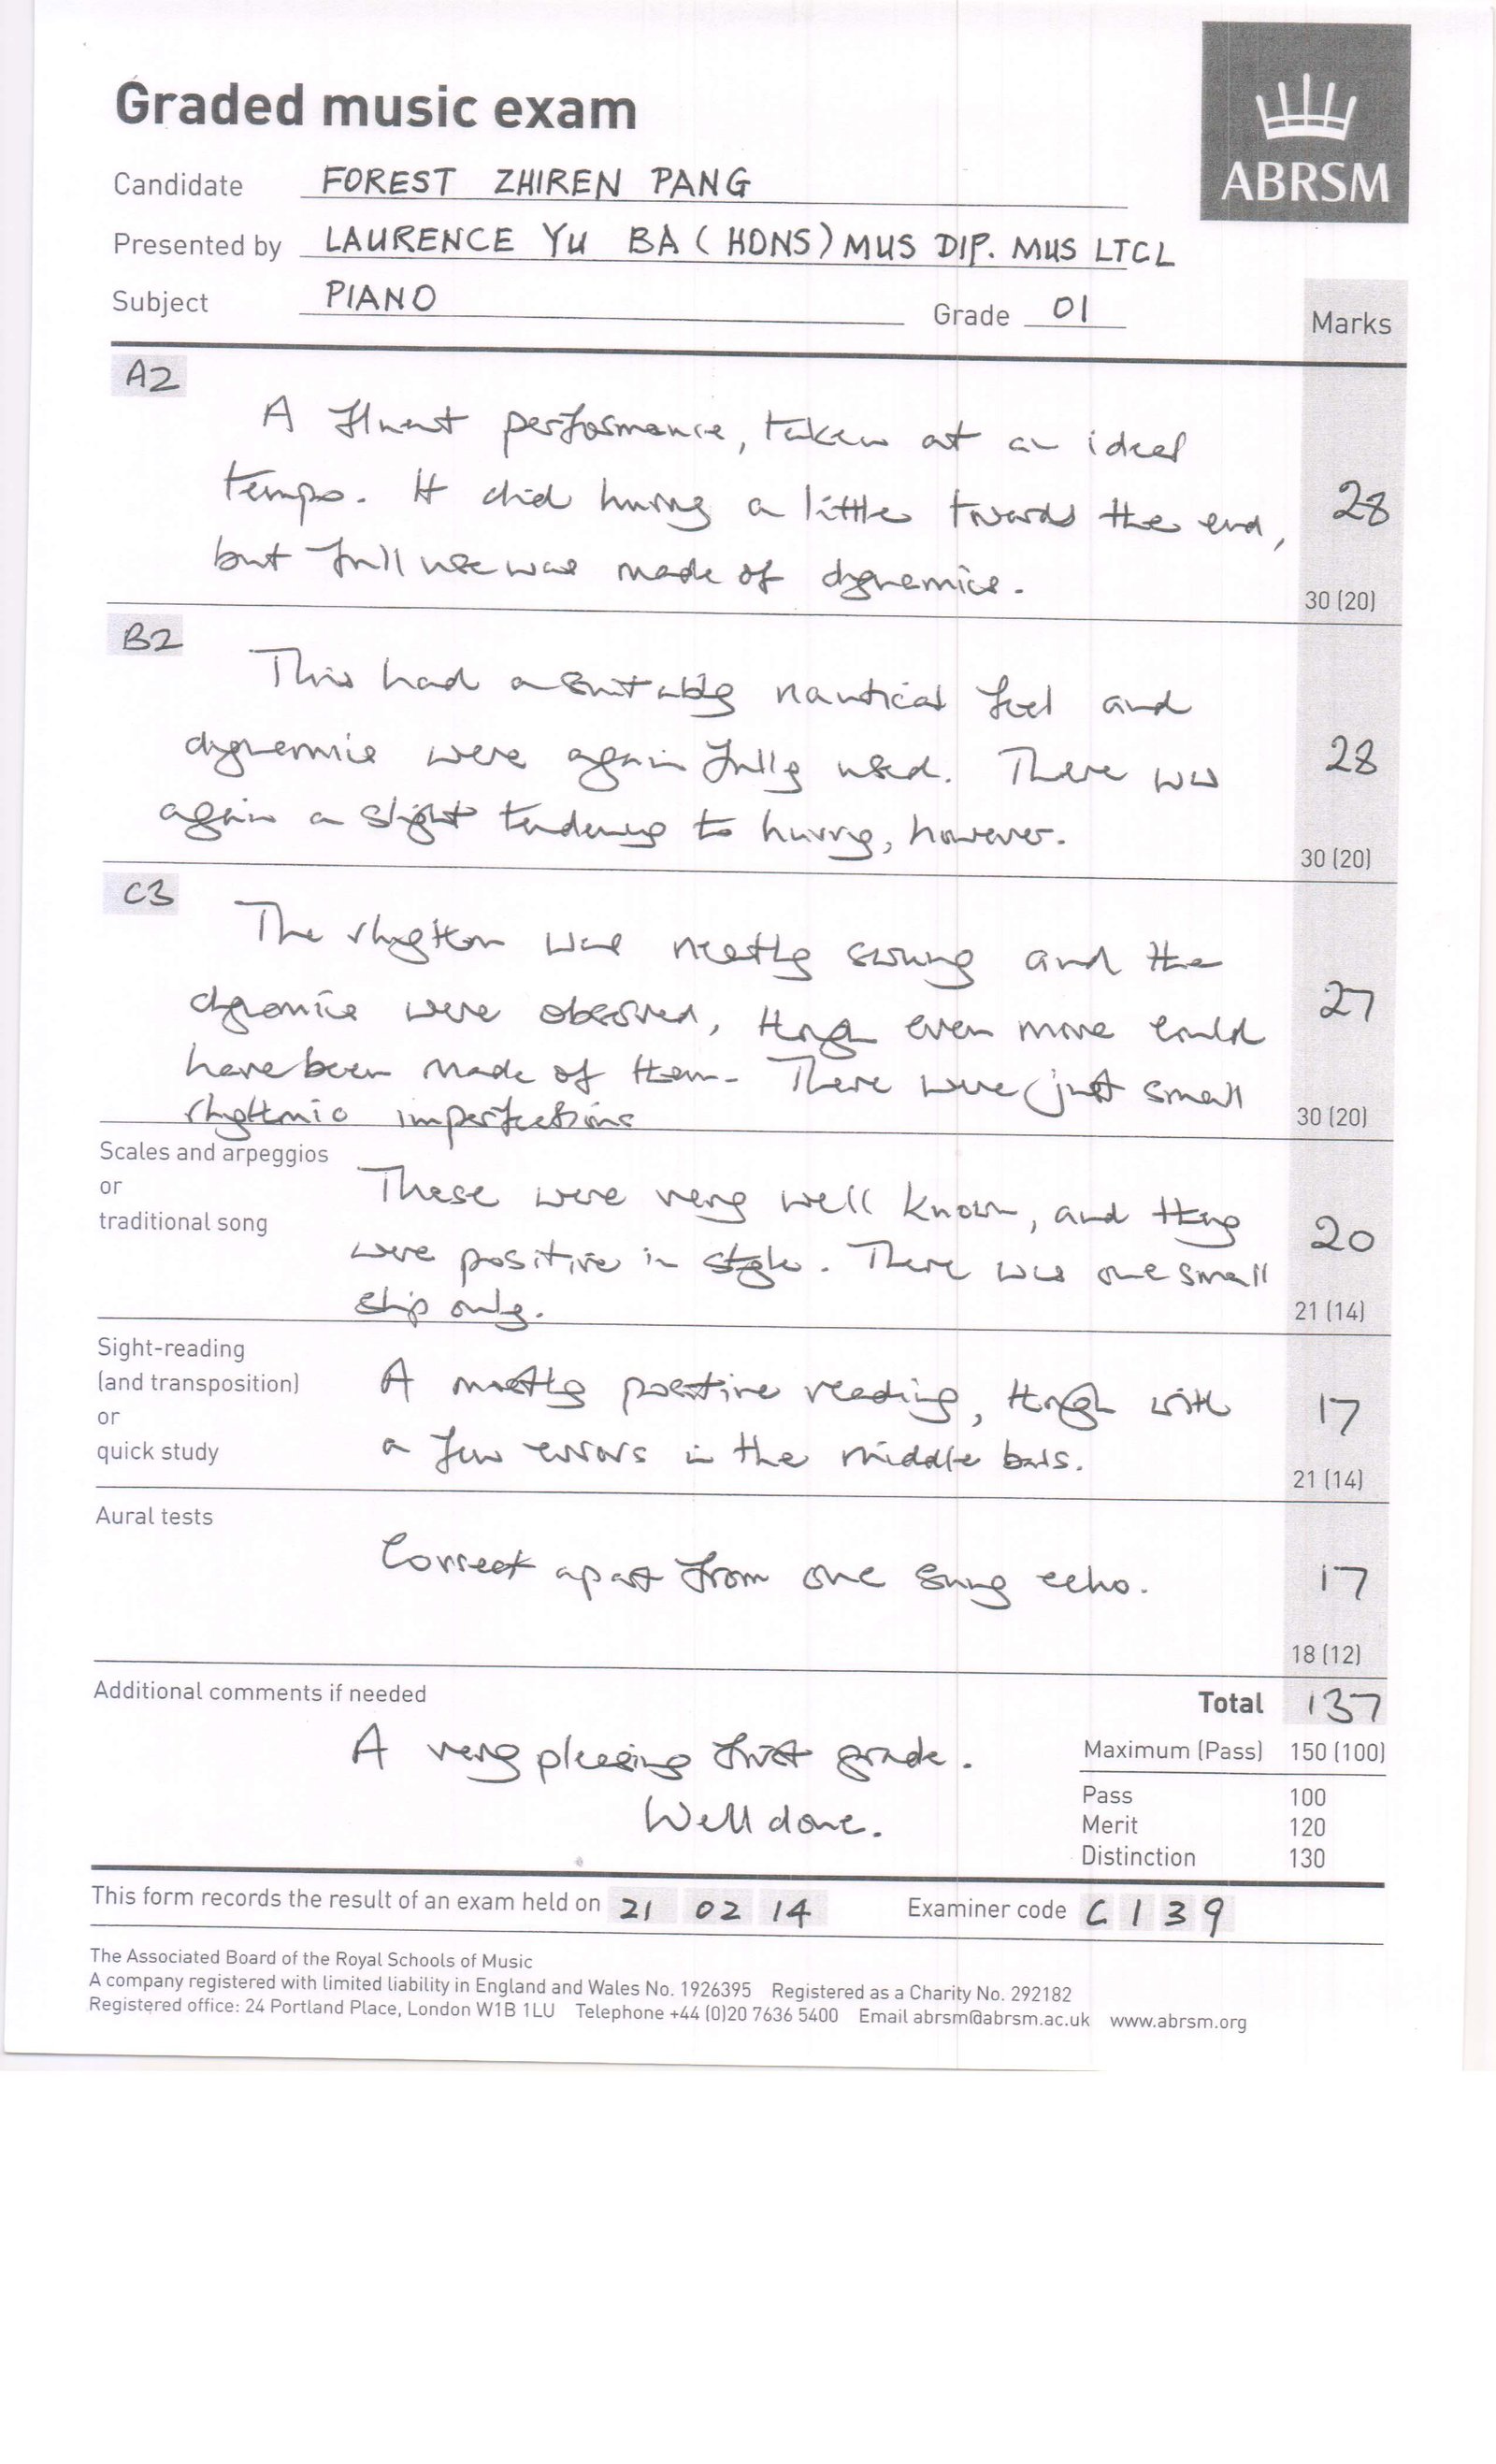 Graded music exam
ABRSM
Candidate FOREST ZHIREN PANG
Presented by LAURENCE YU BA (HONS) MUS DIP. MUS LTCL
Subject PIANO Grade 01
Marks
A2
A fluent performance, taken at an ideal
tempo. It did hurry a little towards the end,
but full use was made of dynamics.
28
30 (20)
B2
This had a suitably nautical feel and
dynamics were again fully used. There was
again a slight tendency to hurry, however.
28
30 (20)
C3
The rhythm was neatly swung and the
dynamics were observed, though even more could
have been made of them. There were just small
rhythmic imperfections
27
30 (20)
Scales and arpeggios
or
traditional song
These were very well known, and they
were positive in style. There was one small
slip only.
20
21 (14)
Sight-reading
(and transposition)
or
quick study
A mostly positive reading, though with
a few errors in the middle bars.
17
21 (14)
Aural tests
Correct apart from one sung echo.
17
18 (12)
Additional comments if needed
A very pleasing first grade.
Well done.
Total 137
Maximum (Pass) 150 (100)
Pass 100
Merit 120
Distinction 130
This form records the result of an exam held on 21 02 14 Examiner code C139
The Associated Board of the Royal Schools of Music
A company registered with limited liability in England and Wales No. 1926395 Registered as a Charity No. 292182
Registered office: 24 Portland Place, London W1B 1LU Telephone +44 (0)20 7636 5400 Email abrsm@abrsm.ac.uk www.abrsm.org